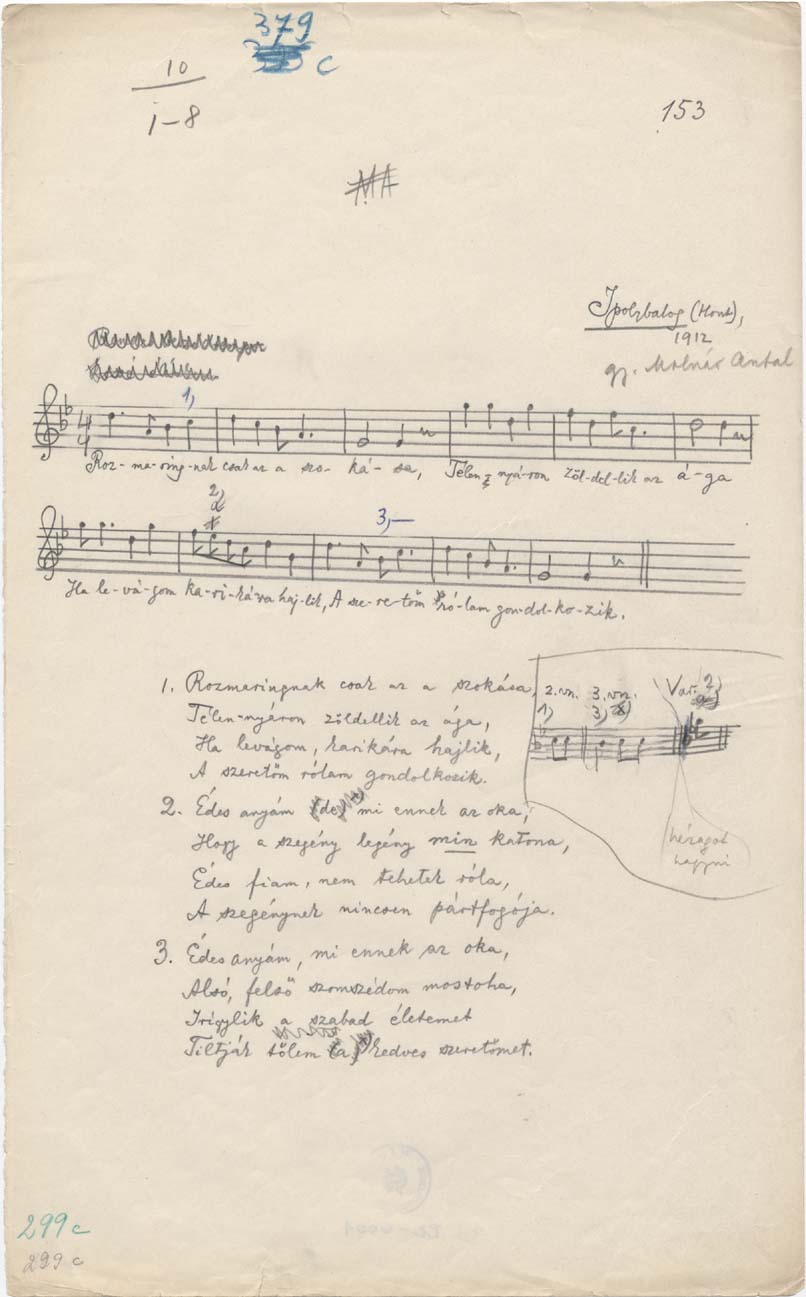 379
c
10
1–8
153
MA
Ipolybalog (Hont),
1912
gy. Molnár Antal
1,
4
4
Roz- ma-ring-nak csak az a szo- ká- sa, Télen nyáron zöl-del-lik az á-ga
2)
3,—
Ha le-vá-gom ka-ri-kára haj-lik, A sze-re-tőm ró-lam gon-dol-ko-zik.
1. Rozmaringnak csak az a szokása,
Télen-nyáron zöldellik az ága,
Ha levágom, karikára hajlik,
A szeretőm rólam gondolkozik.
2. vsz. 3. vsz. Var. 2)
1) 3)
hézagot
hagyni
2. Édes anyám (de) mi ennek az oka,
Hogy a szegény legény min katona,
Édes fiam, nem tehetek róla,
A szegénynek nincsen pártfogója.
3. Édes anyám, mi ennek az oka,
Alsó, felső szomszédom mostoha,
Irigylik a szabad életemet
Tiltják tőlem (a) kedves szeretőmet.
299c
299c